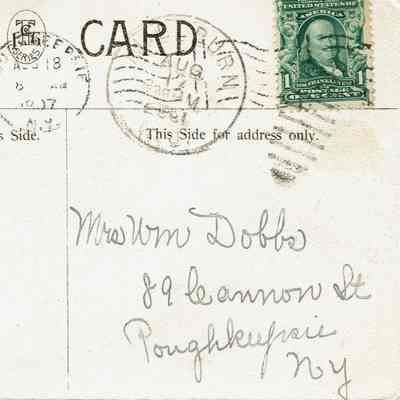 CARD
AUG 18
N.Y.
AUG
UNITED STATES OF AMERICA
1 1
POSTAGE
s Side.
This Side for address only.
Mrs Wm Dobbs
89 Cannon St
Poughkeepsie
NY